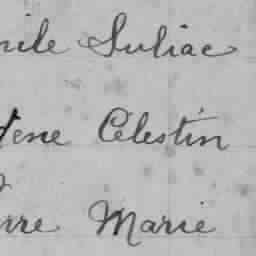 ile Suliac
ène Célestin
rre Marie